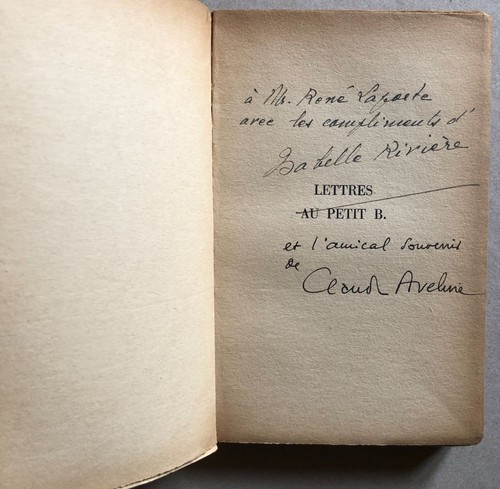 à Mr. René Laporte
avec les compliments d'
Isabelle Rivière
LETTRES
AU PETIT B.
et l'amical souvenir
de
Claude Aveline